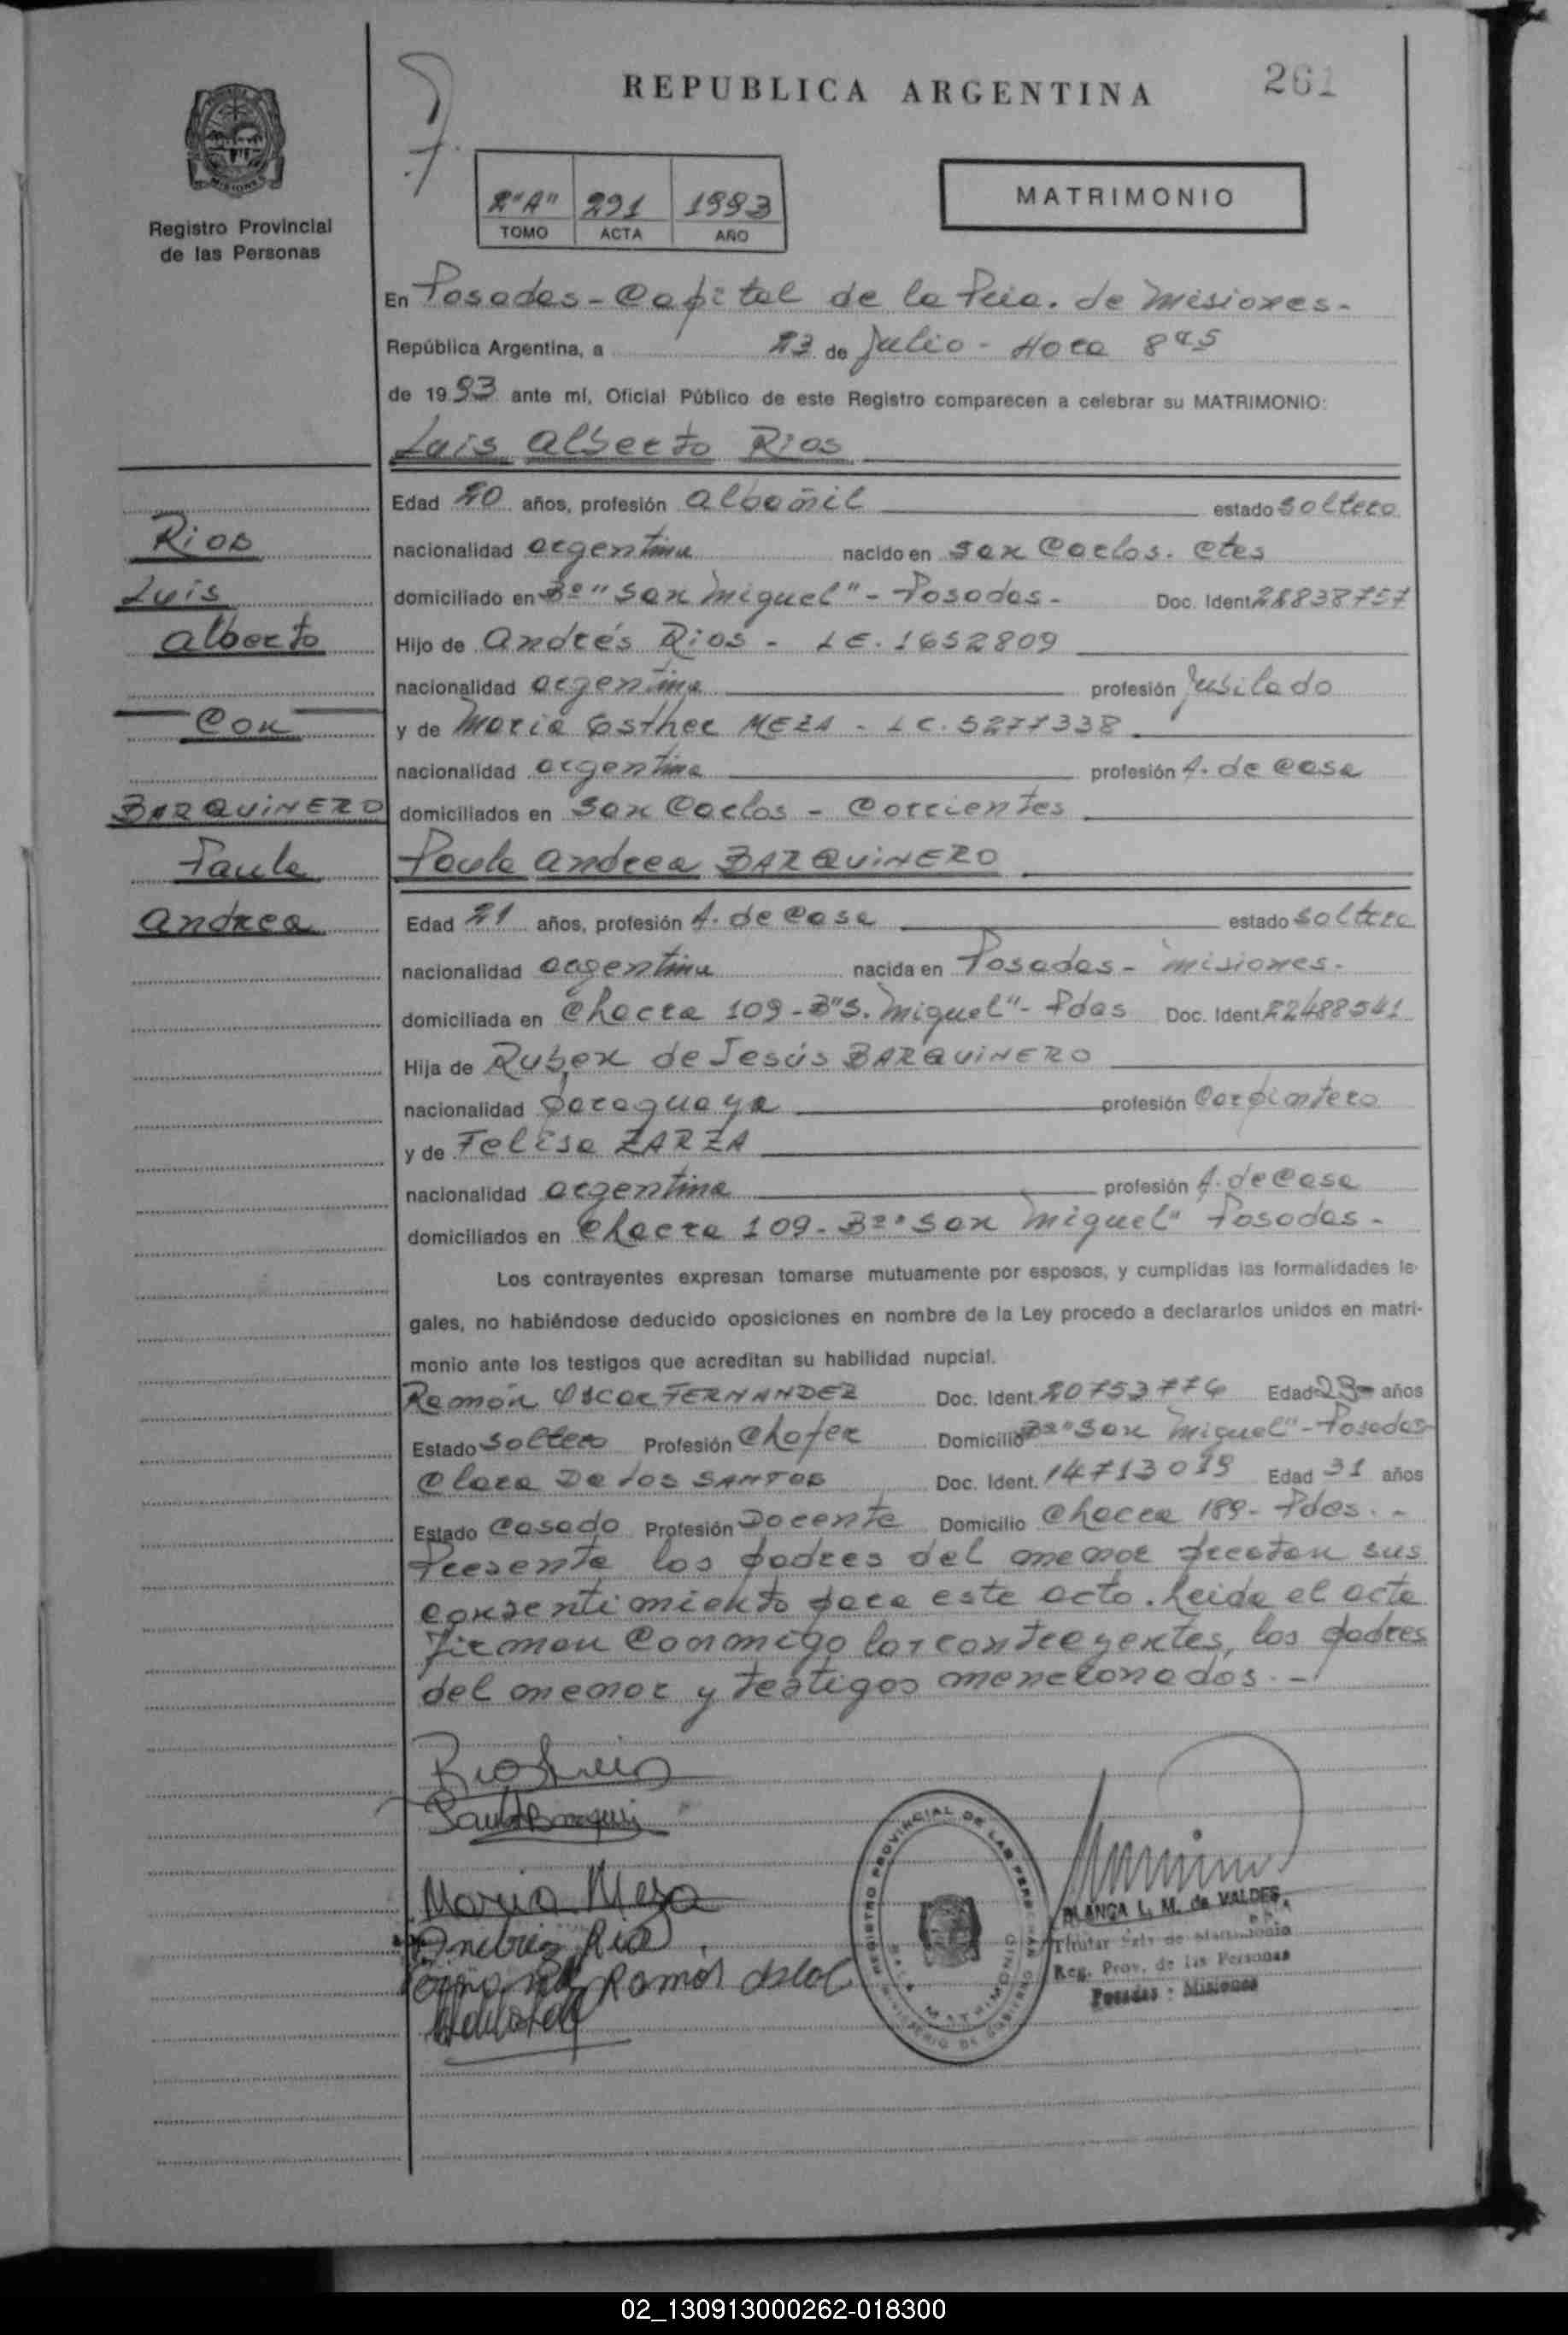 REPUBLICA ARGENTINA
261
Registro Provincial
de las Personas
2"A" 291 1993
TOMO ACTA AÑO
MATRIMONIO
En Posadas - Capital de la Pcia. de Misiones -
República Argentina, a 23 de Julio - Hora 8
de 1993 ante mí, Oficial Público de este Registro comparecen a celebrar su MATRIMONIO:
Luis Alberto Rios
Edad 20 años, profesión Albañil estado soltero
nacionalidad argentina nacido en San Carlos. Ctes
domiciliado en Bº "San Miguel" - Posadas - Doc. Ident.
Hijo de Andrés Rios - LE. 1652809
nacionalidad argentina profesión Jubilado
y de Maria Esther MEZA - LC. 5277338
nacionalidad argentina profesión A. de Casa
domiciliados en San Carlos - Corrientes
Paula Andrea BARQUINERO
Edad 21 años, profesión A. de Casa estado soltera
nacionalidad argentina nacida en Posadas - Misiones -
domiciliada en Chacra 109 - B"S. Miguel" - Pdas Doc. Ident. 22488541
Hija de Ruben de Jesús BARQUINERO
nacionalidad paraguaya profesión Carpintero
y de Felisa ZARZA
nacionalidad argentina profesión A. de Casa
domiciliados en Chacra 109 - Bº "San Miguel" Posadas -
Los contrayentes expresan tomarse mutuamente por esposos, y cumplidas las formalidades le-
gales, no habiéndose deducido oposiciones en nombre de la Ley procedo a declararlos unidos en matri-
monio ante los testigos que acreditan su habilidad nupcial.
Ramón Oscar FERNANDEZ Doc. Ident. 20753774 Edad años
Estado Soltero Profesión Chofer Domicilio Bº "San Miguel" - Posadas
Clara De los SANTOS Doc. Ident. 14713019 Edad 31 años
Estado Casado Profesión Docente Domicilio Chacra 189 - Pdas. -
Presente los padres del menor prestan sus
consentimiento para este acto. Leida el acta
firman conmigo los contrayentes, los padres
del menor y testigos mencionados. -
Rios
Luis
Alberto
Con
BARQUINERO
Paula
Andrea
Rios Luis
Maria Meza
Ramón
REGISTRO PROVINCIAL DE LAS PERSONAS
SALA MATRIMONIO
MINISTERIO DE GOBIERNO
BLANCA L. M. de VALDES
Titular Sala de Matrimonio
Reg. Prov. de las Personas
Posadas - Misiones
02_130913000262-018300